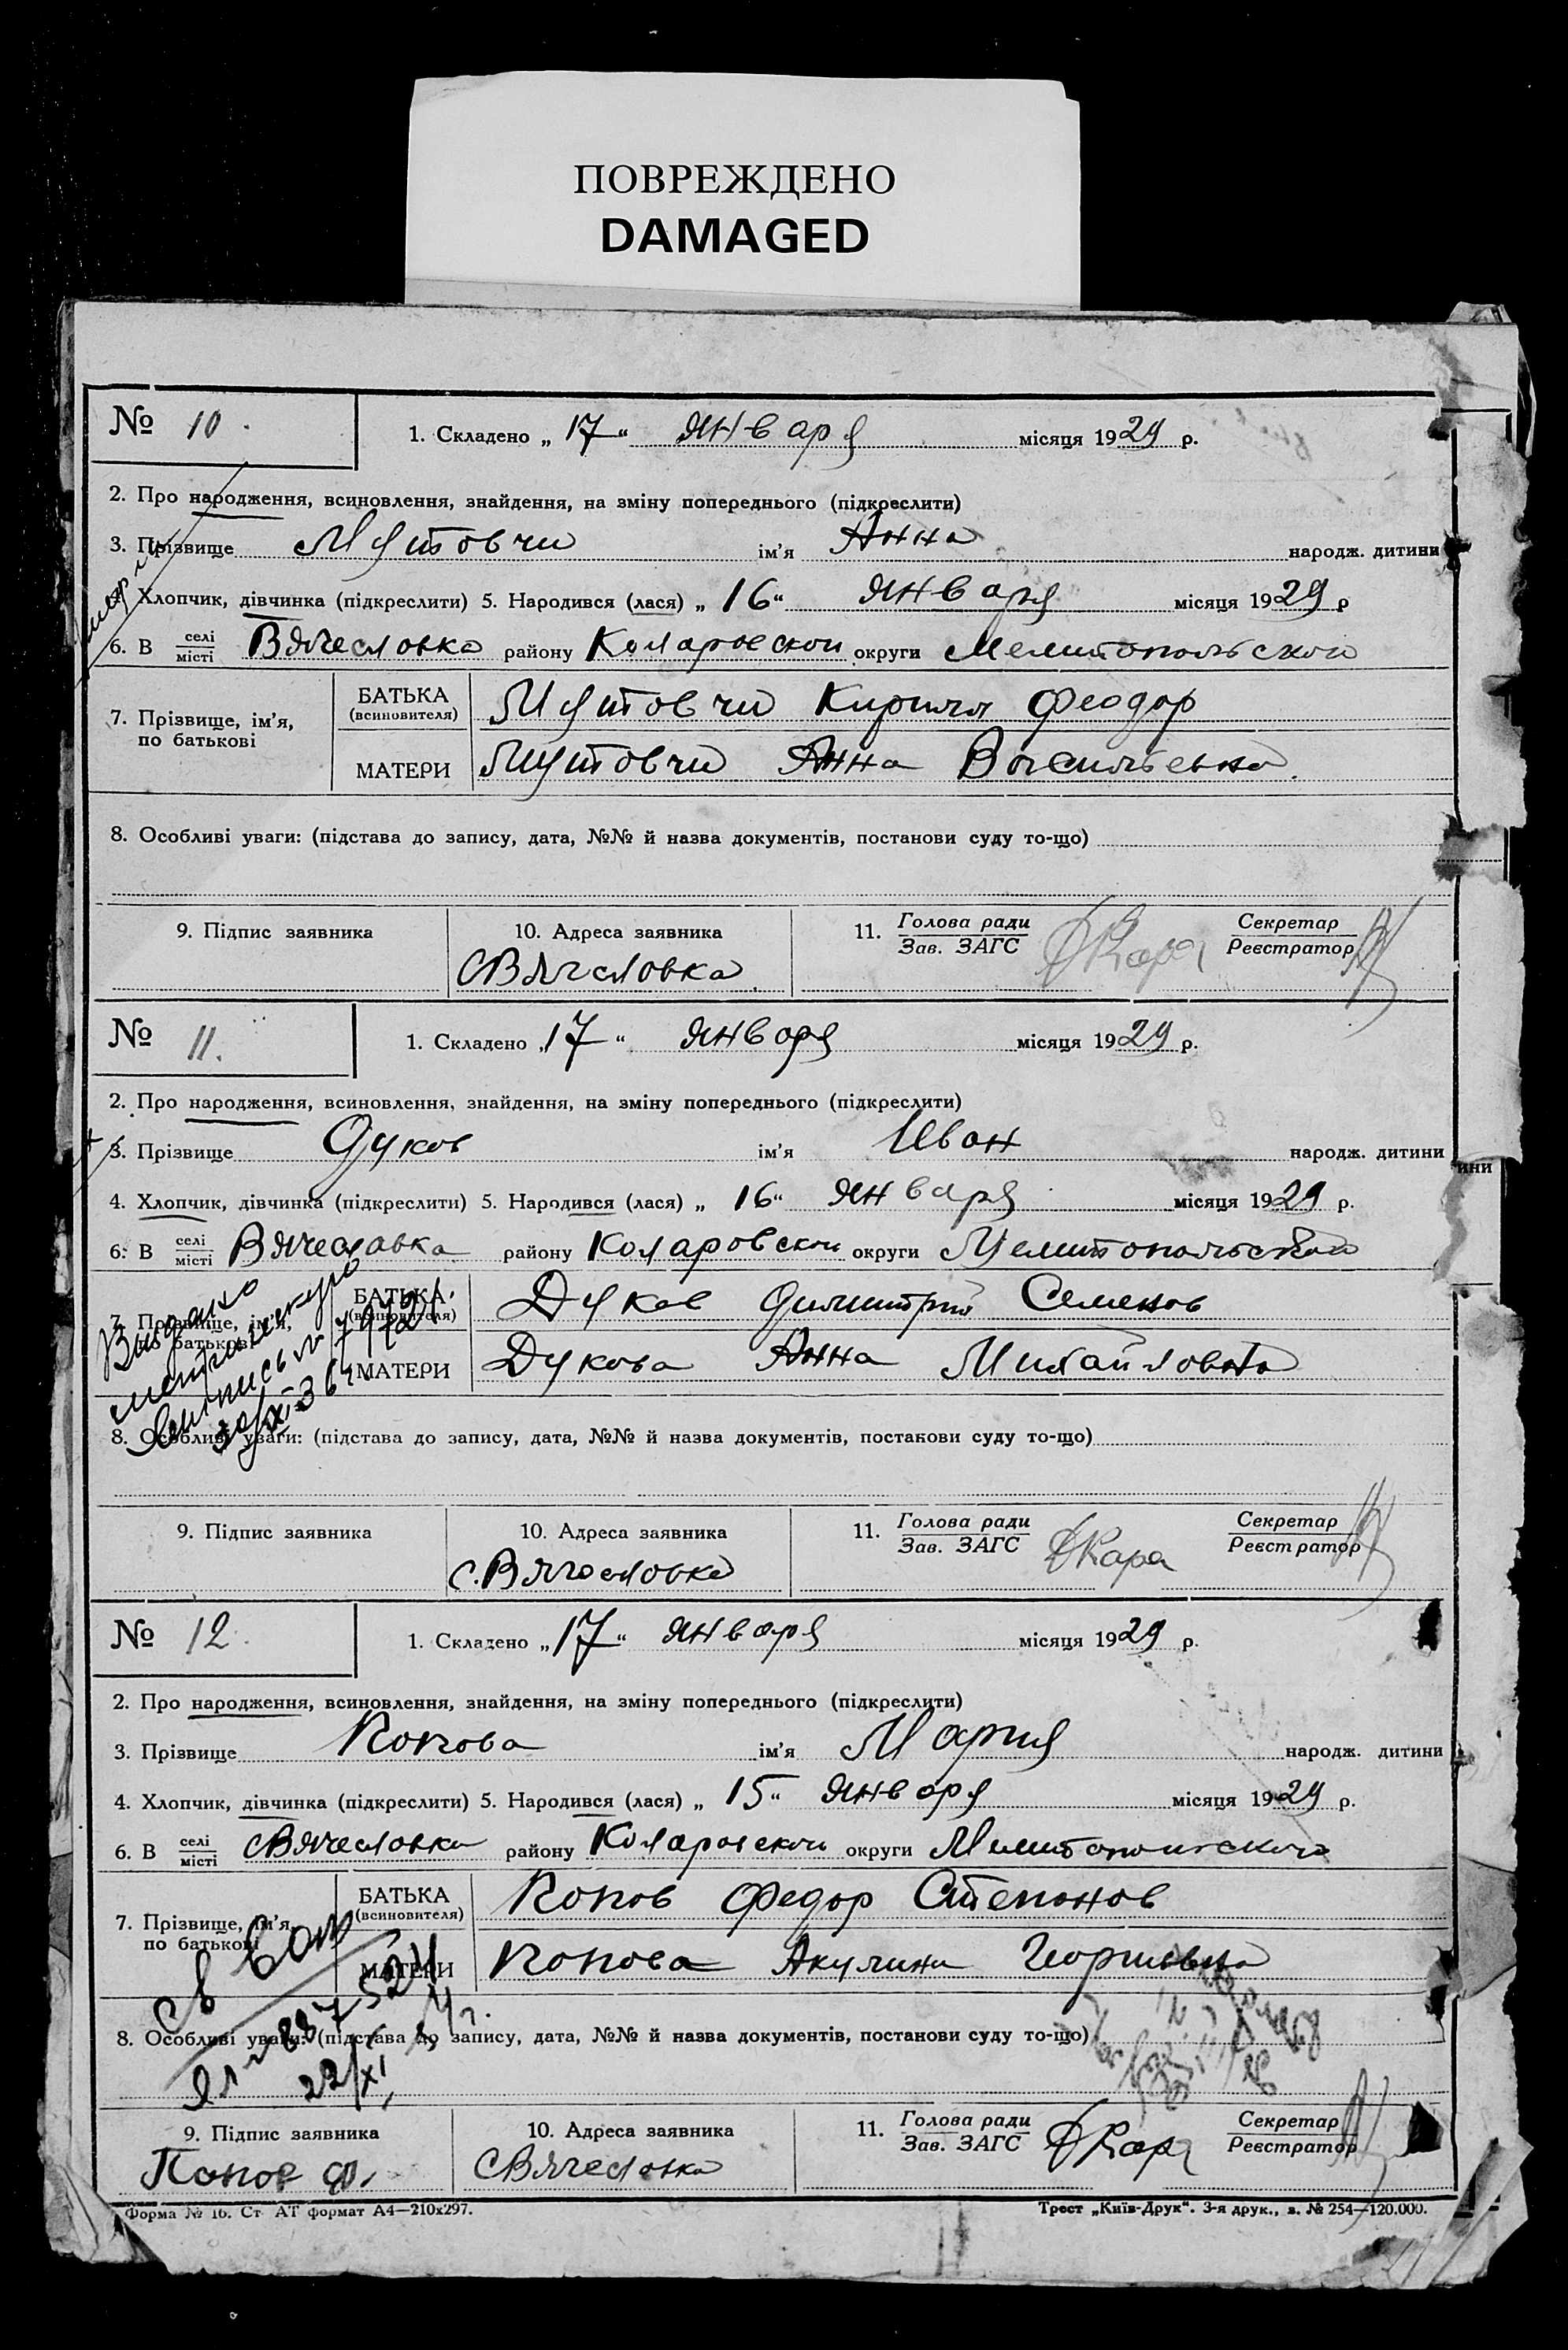 ПОВРЕЖДЕНО
DAMAGED
№ 10.
1. Складено „17“ января місяця 1929 р.
2. Про народження, всиновлення, знайдення, на зміну попереднього (підкреслити)
3. Прізвище Мутовчи ім'я Анна народж. дитини
4. Хлопчик, дівчинка (підкреслити) 5. Народився (лася) „16“ января місяця 1929 р
6. В селі місті Вячеславка району Коларовской округи Мелитопольской
7. Прізвище, ім'я, по батькові
БАТЬКА (всиновителя) Мутовчи Кирилл Феодор
МАТЕРИ Мутовчи Анна Васильевна.
8. Особливі уваги: (підстава до запису, дата, №№ й назва документів, постанови суду то-що)
9. Підпис заявника 10. Адреса заявника 11. Голова ради Зав. ЗАГС Секретар Реєстратор
СВячеславка ДКара
№ 11.
1. Складено „17“ января місяця 1929 р.
2. Про народження, всиновлення, знайдення, на зміну попереднього (підкреслити)
3. Прізвище Дуков ім'я Иван народж. дитини
ини
4. Хлопчик, дівчинка (підкреслити) 5. Народився (лася) „16“ января місяця 1929 р.
6. В селі місті Вячеславка району Коларовской округи Мелитопольской
7. Прізвище, ім'я, по батькові
БАТЬКА (всиновителя) Дуков Димитрий Семенов
МАТЕРИ Дукова Анна Михайловна
8. Особливі уваги: (підстава до запису, дата, №№ й назва документів, постанови суду то-що)
9. Підпис заявника 10. Адреса заявника 11. Голова ради Зав. ЗАГС Секретар Реєстратор
с. Вячеславка ДКара
№ 12.
1. Складено „17“ января місяця 1929 р.
2. Про народження, всиновлення, знайдення, на зміну попереднього (підкреслити)
3. Прізвище Попова ім'я Мария народж. дитини
4. Хлопчик, дівчинка (підкреслити) 5. Народився (лася) „15“ января місяця 1929 р.
6. В селі місті СВячеславка району Коларовской округи Мелитопольской
7. Прізвище, ім'я, по батькові
БАТЬКА (всиновителя) Попов Федор Степанов
МАТЕРИ Попова Акулина Георгиевна
8. Особливі уваги: (підстава до запису, дата, №№ й назва документів, постанови суду то-що)
9. Підпис заявника 10. Адреса заявника 11. Голова ради Зав. ЗАГС Секретар Реєстратор
Попов Ф. СВячеславка ДКара
Форма № 16. Ст. АТ формат А4—210х297. Трест „Київ-Друк“. 3-я друк., з. № 254—120.000.